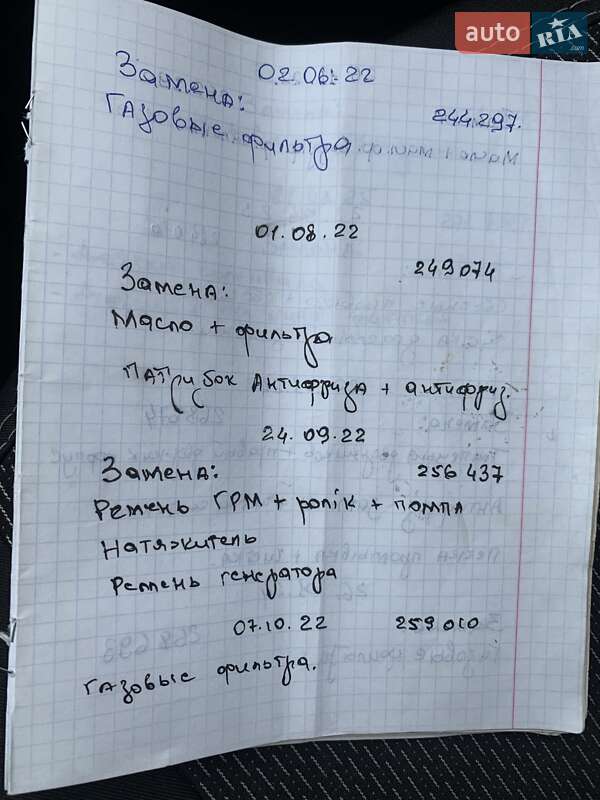 auto RIA .com
02.06.22
Замена:
244.297.
Газовые фильтра
01.08.22
249074
Замена:
Масло + фильтра
Патрибок Антифриза + антифриз.
24.09.22
Замена:
256 437
Ремень ГРМ + ролік + помпа
Натяжитель
Ремень генератора
07.10.22 259010
Газовые фильтра.